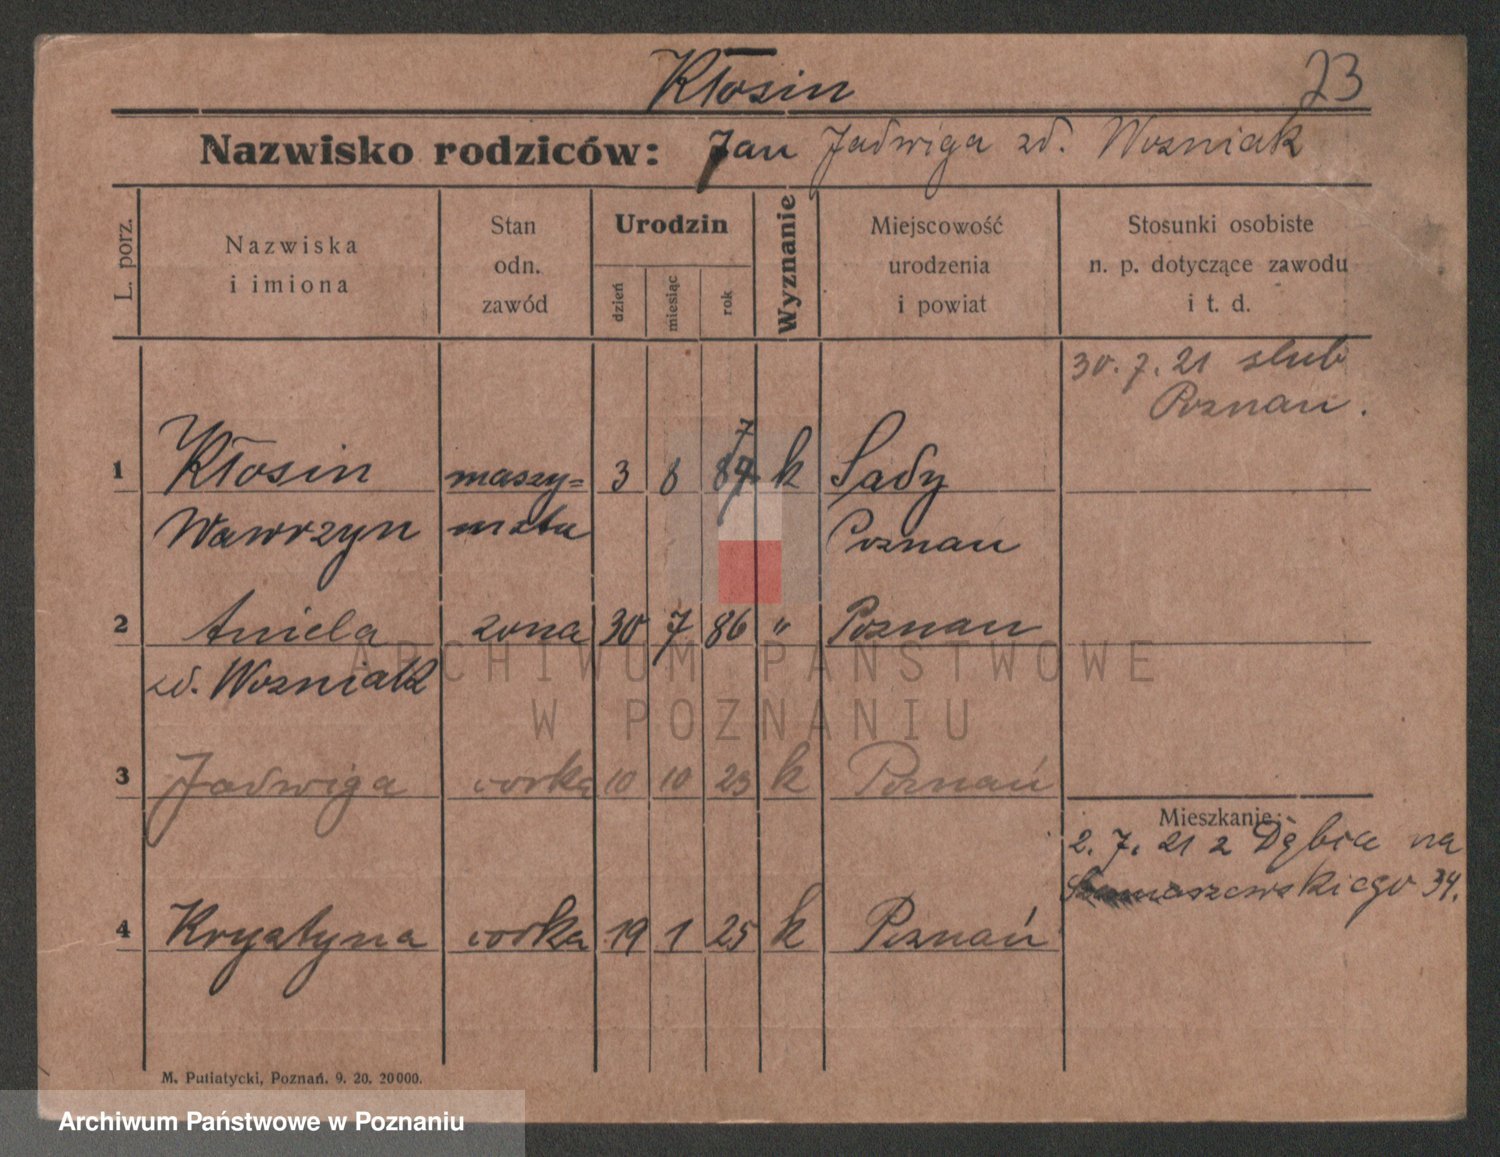 Kłosin 73
Nazwisko rodziców: Jan Jadwiga zd. Wozniak
L. porz.
Nazwiska
i imiona
Stan
odn.
zawód
Urodzin
dzień
miesiąc
rok
Wyznanie
Miejscowość
urodzenia
i powiat
Stosunki osobiste
n. p. dotyczące zawodu
i t. d.
30.7.21 slub
Poznań.
1 Kłosin maszy= 3 8 87 k Sady
Wawrzyn nista Poznań
2 Aniela zona 30 7 86 " Poznan
zd. Wozniak
3 Jadwiga corka 10 10 23 k Poznań
Mieszkanie:
2. 7. 21 z Dębca na
34.
4 Krystyna corka 19 1 25 k Poznań
M. Putiatycki, Poznań. 9. 20. 20000.
ARCHIWUM PAŃSTWOWE
W POZNANIU
Archiwum Państwowe w Poznaniu